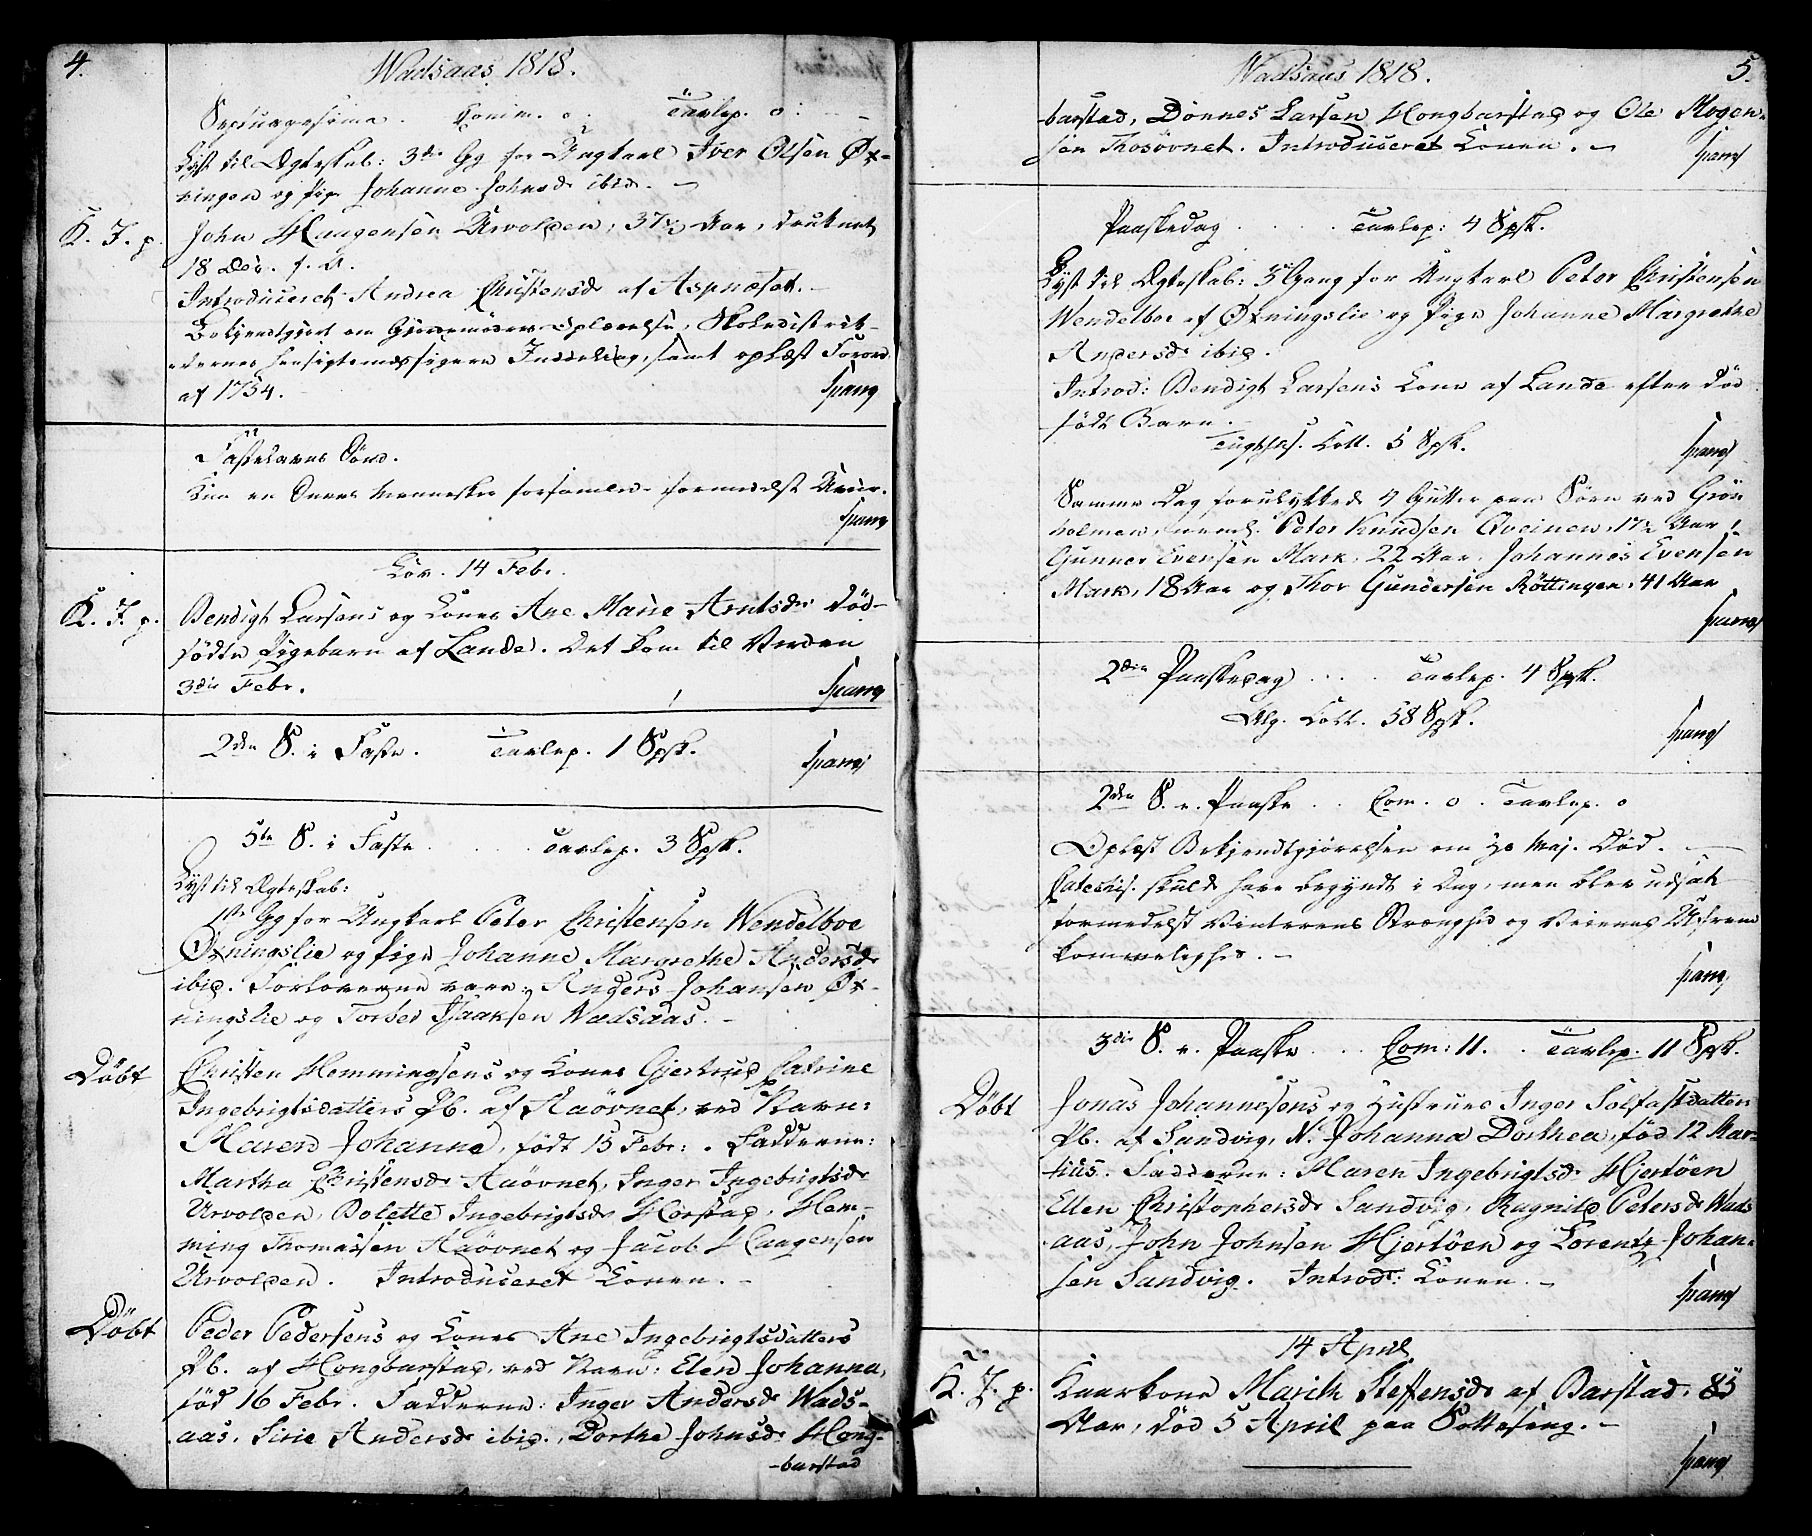 4.
Wadsaas 1818.
Septuagesima. Comm. o. Tavlep. o.
Lyst til Ægteskab: 3die Gg for Ungkarl Iver Olsen Øx-
ningen og Pige Johanne Johnsd. ibid. –
K. J. p. John Haagensen Urvolden, 37½ Aar, druknet
18 Dec. f. A.
Introduceret Andrea Christensd. af Aspnæset. –
Bekjendtgjort om Skoledistrik-
ternes hensigtsmæssigere Inddeling, samt oplæst Forord.
af 1754.
Spang
Fastelavns Sönd.
Kun en Snees Mennesker forsamlede formedelst Uveir.
Spang
Löv. 14 Febr.
K. J. p. Bendigt Larsens og Kones Ane Marie Arntsdr. död-
födte Pigebarn af Lande. Det kom til Verden
3die Febr.
Spang
2den S. i Faste. Tavlep. 1 Spsk.
Spang
5te S. i Faste. Tavlep. 3 Spsk.
Lyst til Ægteskab:
1ste Gg for Ungkarl Peter Christensen Wendelboe
Øxningslie og Pige Johanne Margrethe Andersdr
ibid. Forloverne vare: Anders Johansen Øx-
ningslie og Torber Isaaksen Wadsaas. –
Döbt Christen Hemmingsens og Kones Gjertrud Catrine
Ingebrigtsdatters Pb. af Aaövnet, ved Navn:
Maren Johanna, födt 15 Febr: . Fadderne:
Martha Christensdr Aaövnet, Inger Ingebrigtsdr
Urvolden, Bolette Ingebrigtsdr Horstad, Hem-
ming Thomassen Aaövnet og Jacob Haagensen
Urvolden. Introduceret Konen. –
Döbt Peder Pedersens og Kones Ane Ingebrigtsdatters
Pb. af Hongbarstad, ved Navn: Elen Johanna,
föd 16 Febr. Fadderne: Inger Andersdr Wads-
aas, Sirie Andersdr ibid., Dorthe Johnsdr Hong-
-barstad
Wadsaas 1818.
5.
barstad, Dönnes Larsen Hongbarstad og Ole Mogen-
sen Thosövnet. Introduceret Konen. –
Spang
Paaskedag . . . . Tavlep: 4 Spsk.
Lyst til Ægteskab: 3die Gang for Ungkarl Peter Christensen
Wendelboe af Øxningslie og Pige Johanne Margrethe
Andersdr ibid.
Introd: Bendigt Larsens Kone af Lande efter död
födt Barn.
Tugths. Coll. 5 Spsk.
Spang
Samme Dag forulykkede 4 Gutter paa Söen ved Grön
holmen, neml. Peter Knudsen Qveinen, 17½ Aar,
Gunner Evensen Mark, 22 Aar, Johannes Evensen
Mark, 18 Aar og Thor Gundersen Röttingen, 41 Aar
Spang
2den Paaskedag . . . Tavlep. 4 Spsk.
Alg. Coll. 58 Spsk.
Spang
2den S. e. Paaske . . Com. o . Tavlep. o
Oplæst Bekjendtgjörelsen om Hs Maj. Död. –
Catechis. skulde have begyndt i Dag, men blev udsat
formedelst Vinterens Strænghed og Veienes Ufrem
kommelighed. –
Spang
3die S. e. Paaske . . . Com: 11. . Tavlep. 11 Spsk.
Döbt Jonas Johannesens og Hustrues Inger Solfastdatters
Pb. af Sandvig, N. Johanna Dorthea, föd 12 Mar-
tius. Fadderne: Maren Ingebrigtsdr Hjertöen
Ellen Christophersdr Sandvig, Ragnild Petersdr Wads
aas, John Johnsen Hjertöen og Lorents Johan-
sen Sandvig. Introd: Konen. –
Spang
14 April
K. J. p. Kaarkone Marith Steffensdr af Barstad, 85
Aar, död 5 April paa Sotteseng. –
Spang